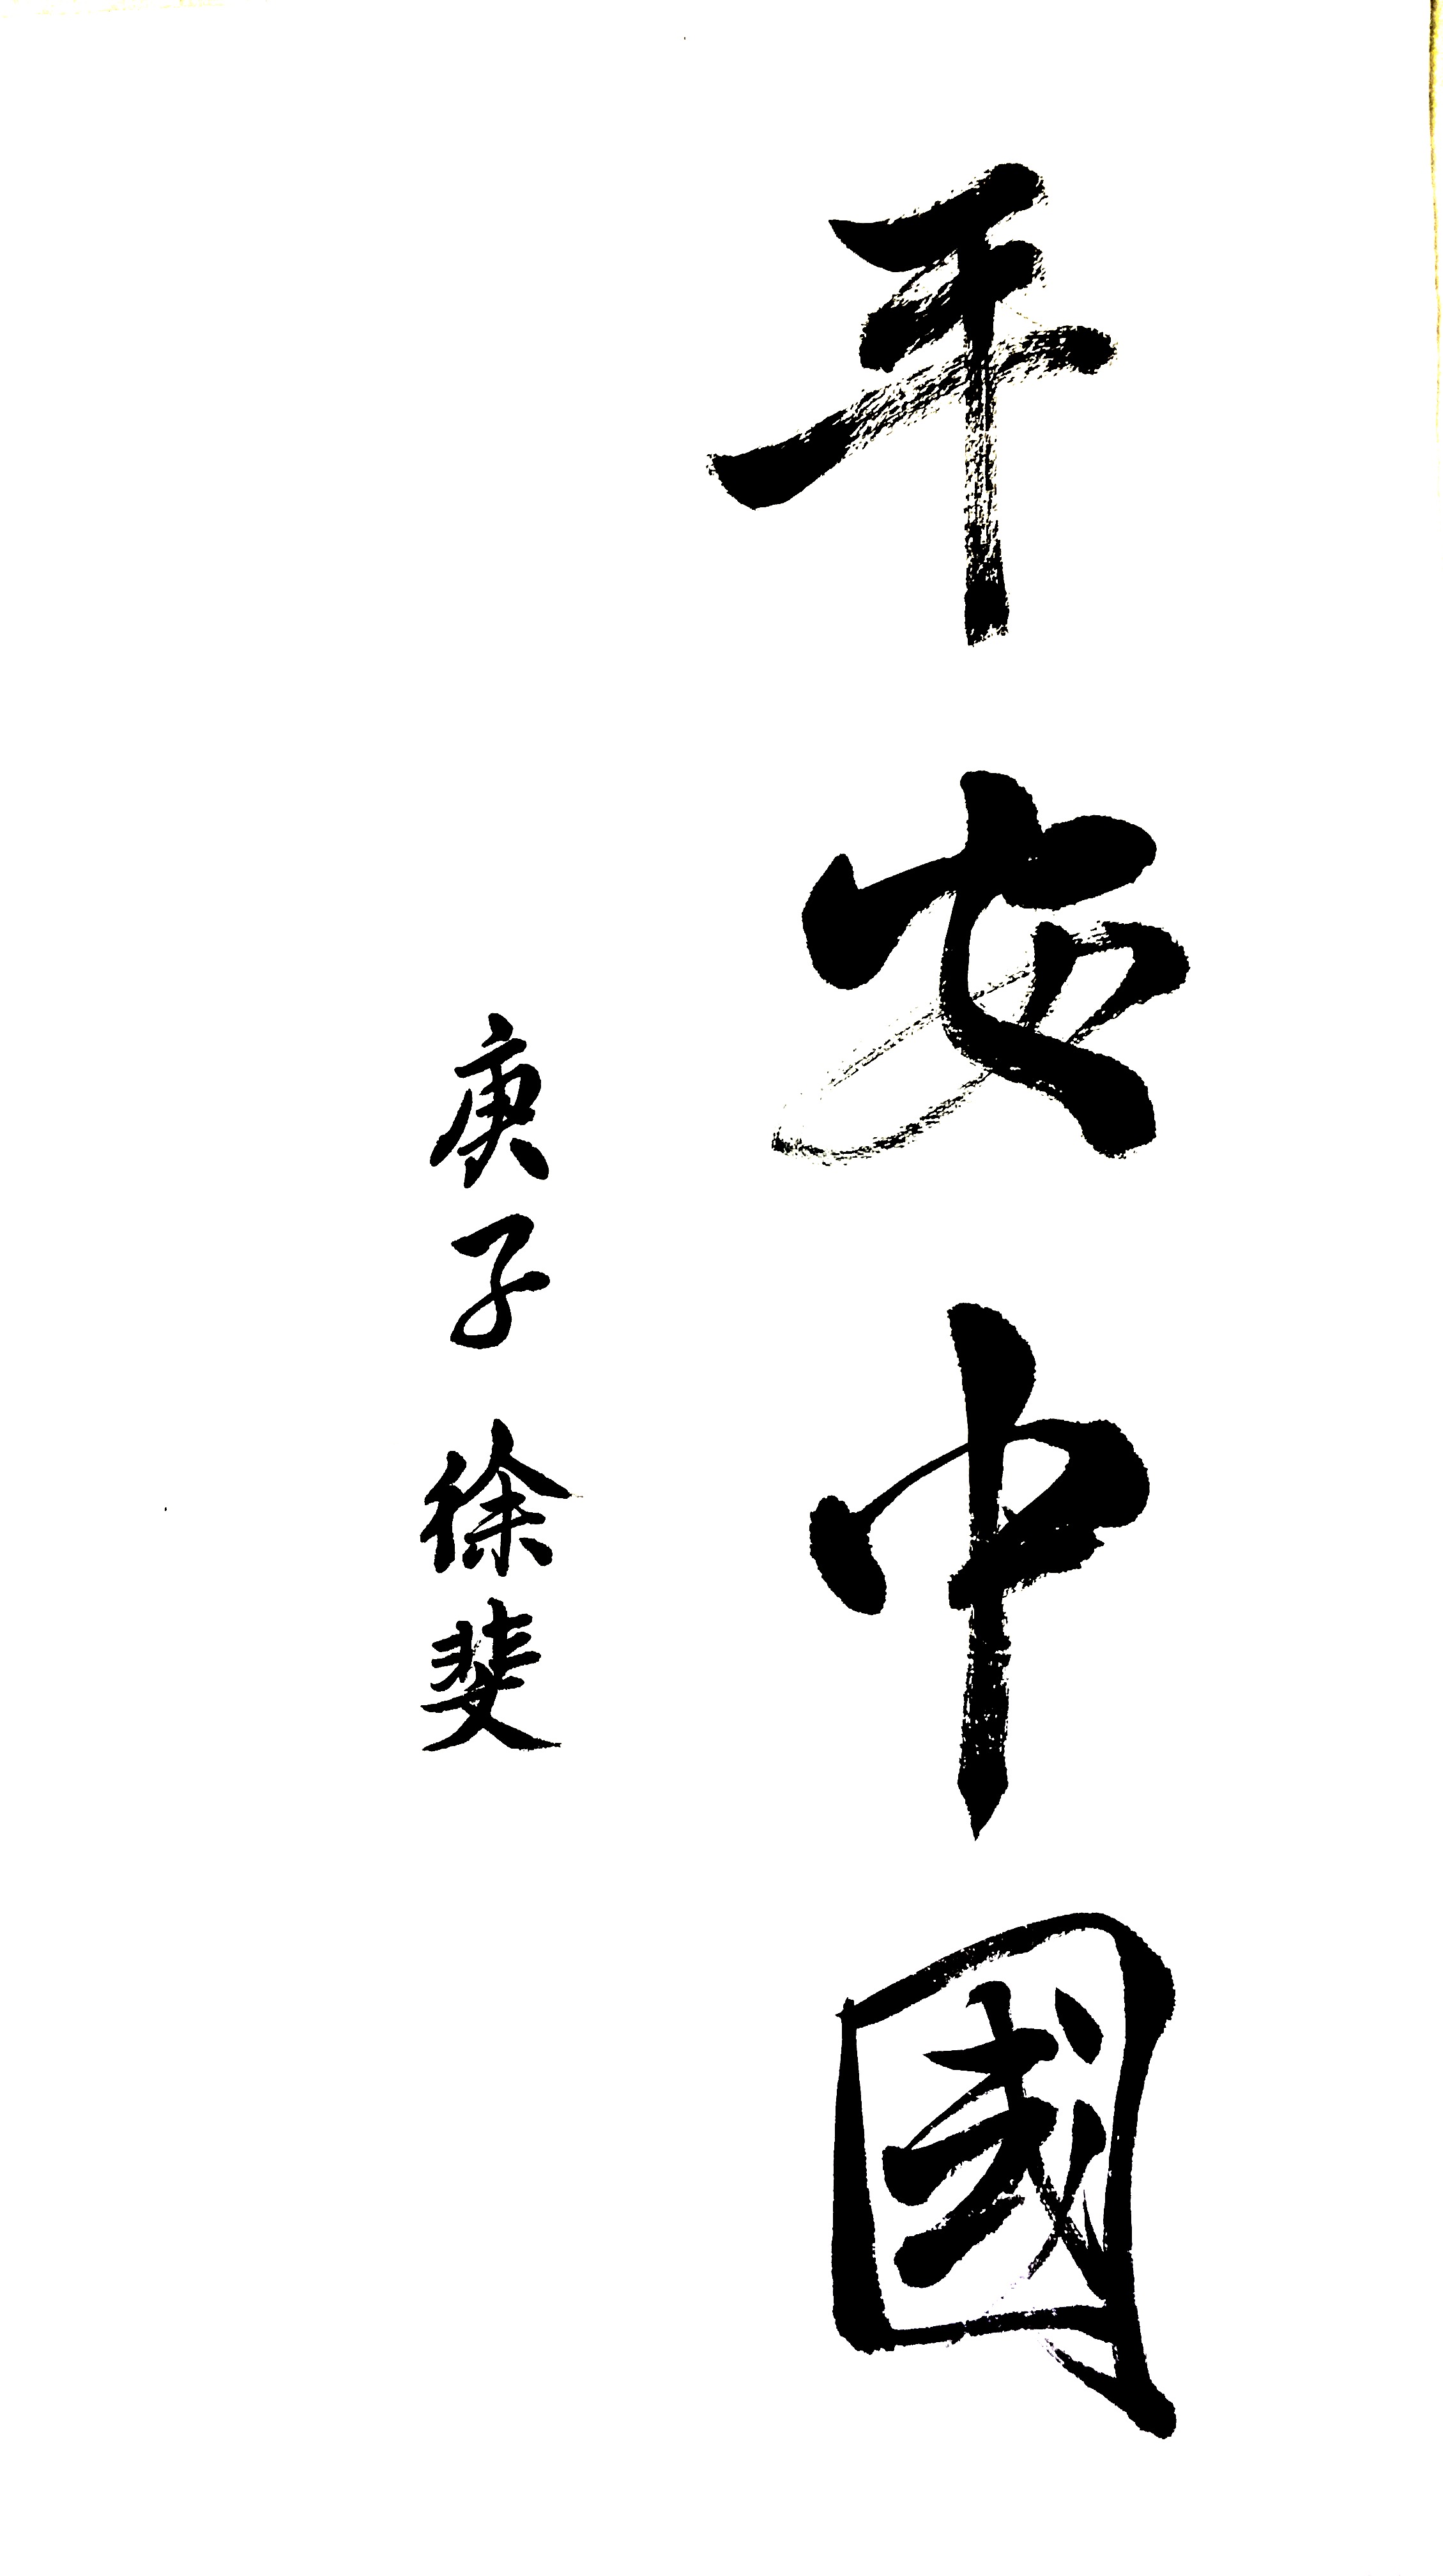 平安中國
庚子 徐斐